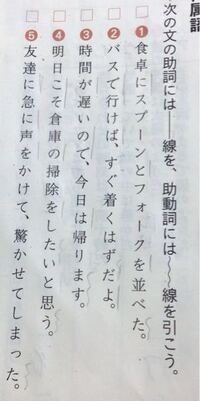 属語
次の文の助詞には——線を、助動詞には〜〜線を引こう。
❶食卓にスプーンとフォークを並べた。
❷バスで行けば、すぐ着くはずだよ。
❸時間が遅いので、今日は帰ります。
❹明日こそ倉庫の掃除をしたいと思う。
❺友達に急に声をかけて、驚かせてしまった。